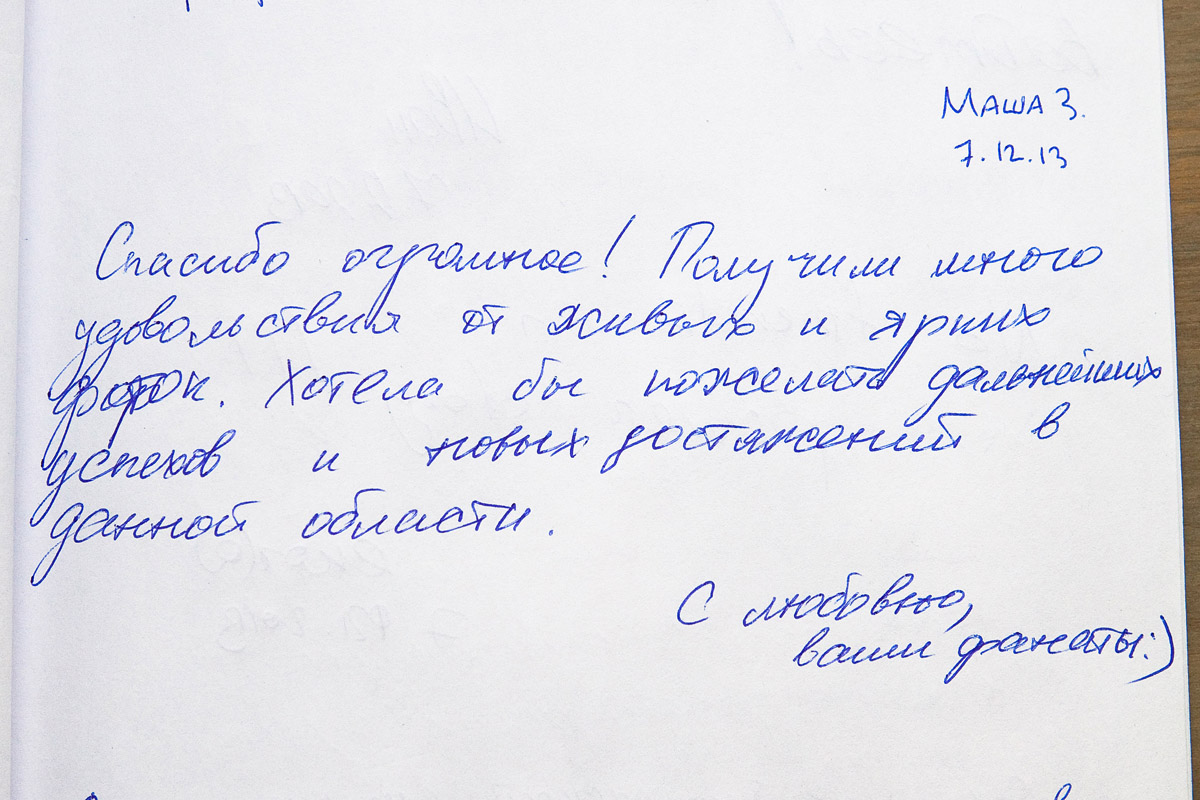 Маша З.
7.12.13
Спасибо огромное! Получили много
удовольствия от живых и ярких
фоток. Хотела бы пожелать дальнейших
успехов и новых достяжений в
данной области.
С любовью,
ваши фанаты:)